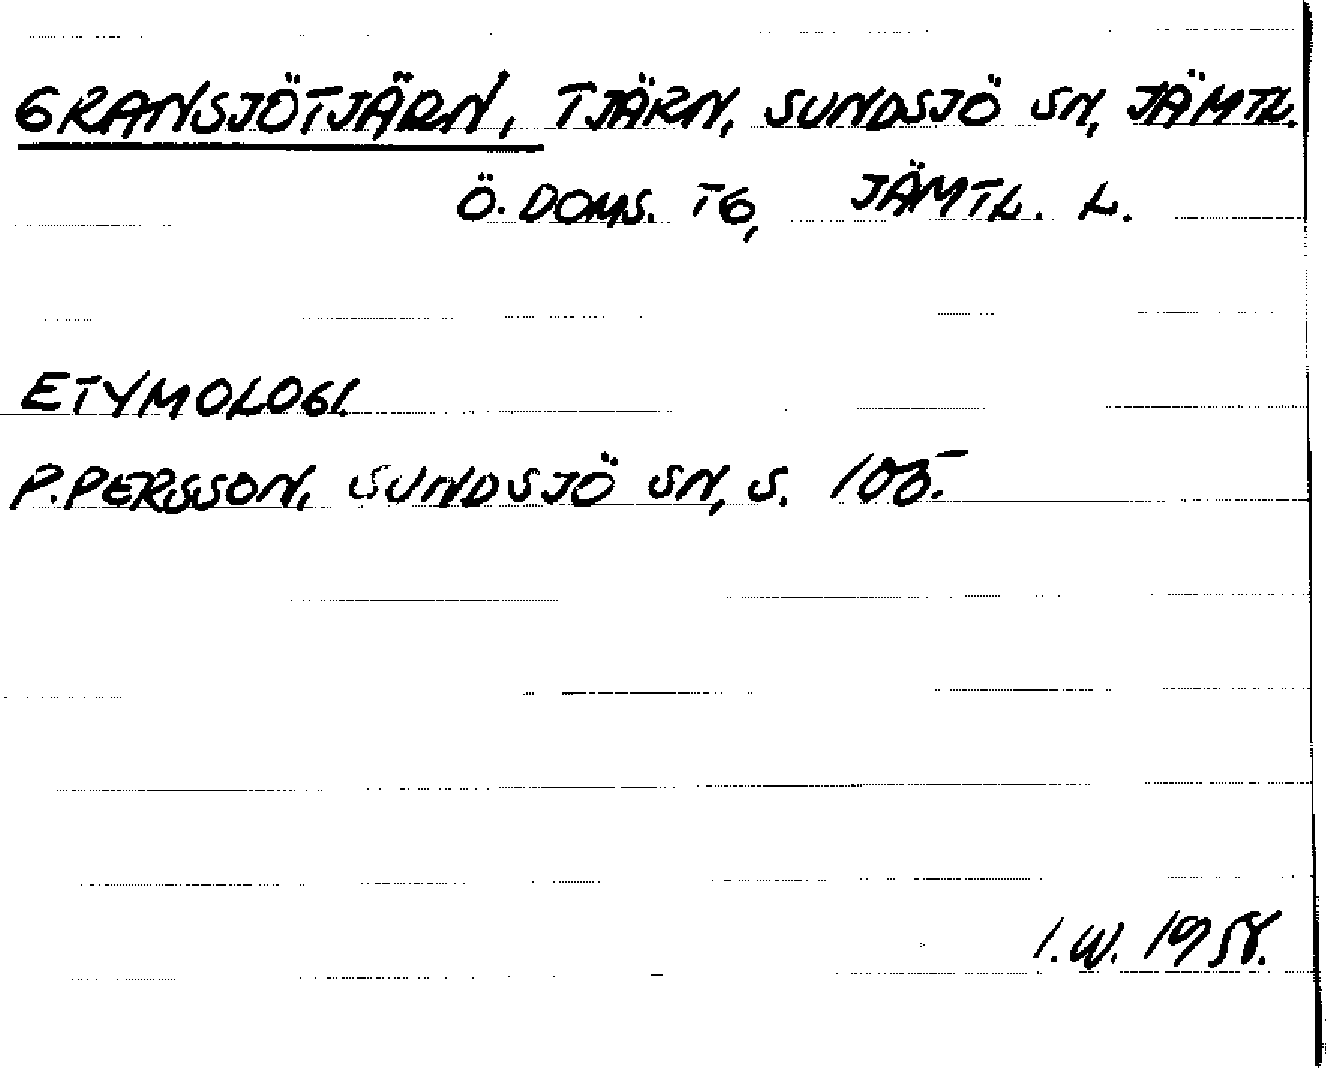 GRANSJÖTJÄRN, TJÄRN, SUNDSJÖ SN, JÄMTL.
Ö. DOMS. TG, JÄMTL. L.
ETYMOLOGI.
P. PERSSON, SUNDSJÖ SN, S.
I.W. 1958.